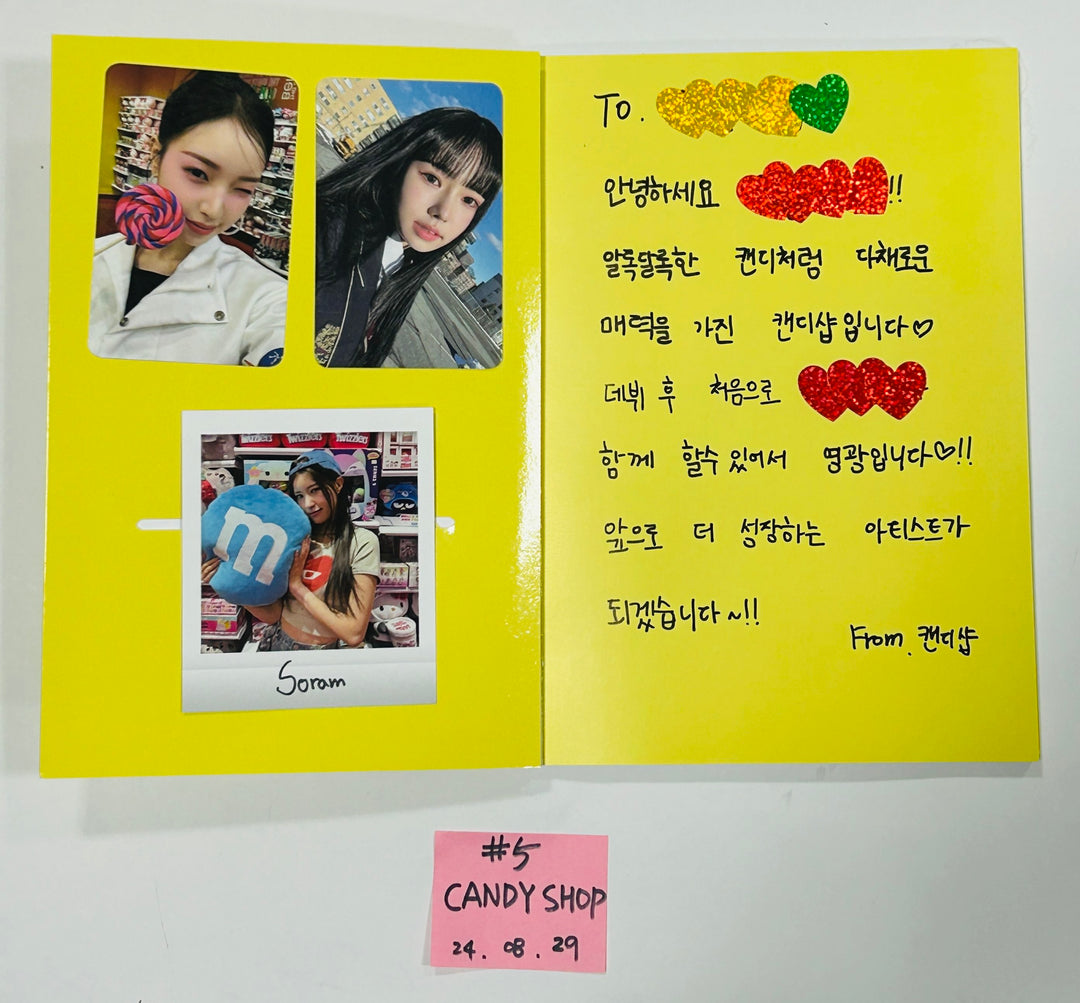 To.
안녕하세요 !!
알록달록한 캔디처럼 다채로운
매력을 가진 캔디샵입니다♡
데뷔 후 처음으로
함께 할수있어서 영광입니다♡!!
앞으로 더 성장하는 아티스트가
되겠습니다~!!
From. 캔디샵
TWIZZLERS TWIZZLERS TWIZZLERS
m
Soram
#5
CANDY SHOP
24. 08. 29